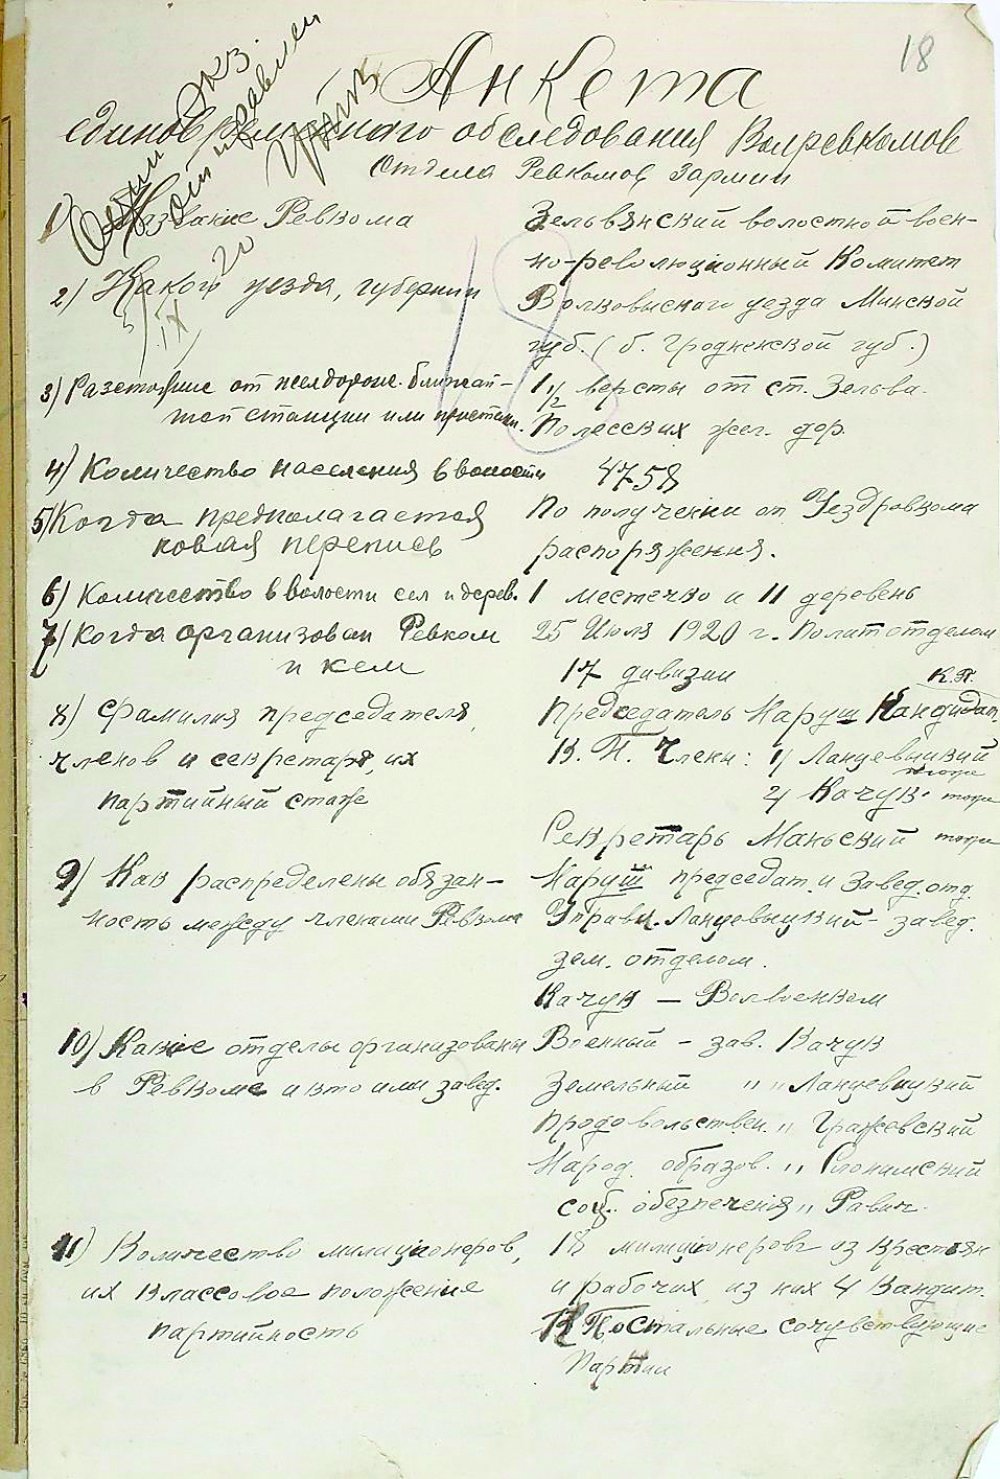 18
Анкета
единовременного обследования Волревкомов
Отдела Ревкомов Зармии
1) Название Ревкома
Зельвянский волостной воен-
но-революционный Комитет
2) Какого уезда, губернии
Волковыского уезда Минской
губ. (б. Гродненской губ.)
3) Разстояние от желдорож. ближай-
шей станции или пристани.
1 1/2 версты от ст. Зельва.
Полесских жел. дор.
4) Количество населения в волости
4758
5) Когда предполагается
новая перепись
По получении от Уездревкома
распоряжения.
6) Количество в волости сел и дерев.
1 местечко и 11 деревень
7) Когда организован Ревком
и кем
25 Июля 1920 г. Политотделом
17 дивизии
8) Фамилия председателя,
членов и секретаря, их
партийный стаж
К.П.
Председатель Наруш Кандидат.
К. П. Члени: 1) Ланцевицкий
тоже
2) Качук. тоже
Секретарь Маньский тоже
9) Как распределены обязан-
ность между членами Ревкома
Наруш председат. и Завед. отд.
Управл. Ланцевицкий - завед.
зем. отделом.
Качук — Волвоенком
10) Какие отделы организованы
в Ревкоме и кто ими завед.
Военный - зав. Качук
Земельный " " Ланцевицкий
Продовольствен. " Гражевский
Народ. образов. " Слонимский
соц. обезпечения " Равич.
11) Количество милиционеров,
их классовое положение
партийность
18 милиционеров из крестьян
и рабочих, из них 4 Кандит.
К П остальные сочувствующие
партии